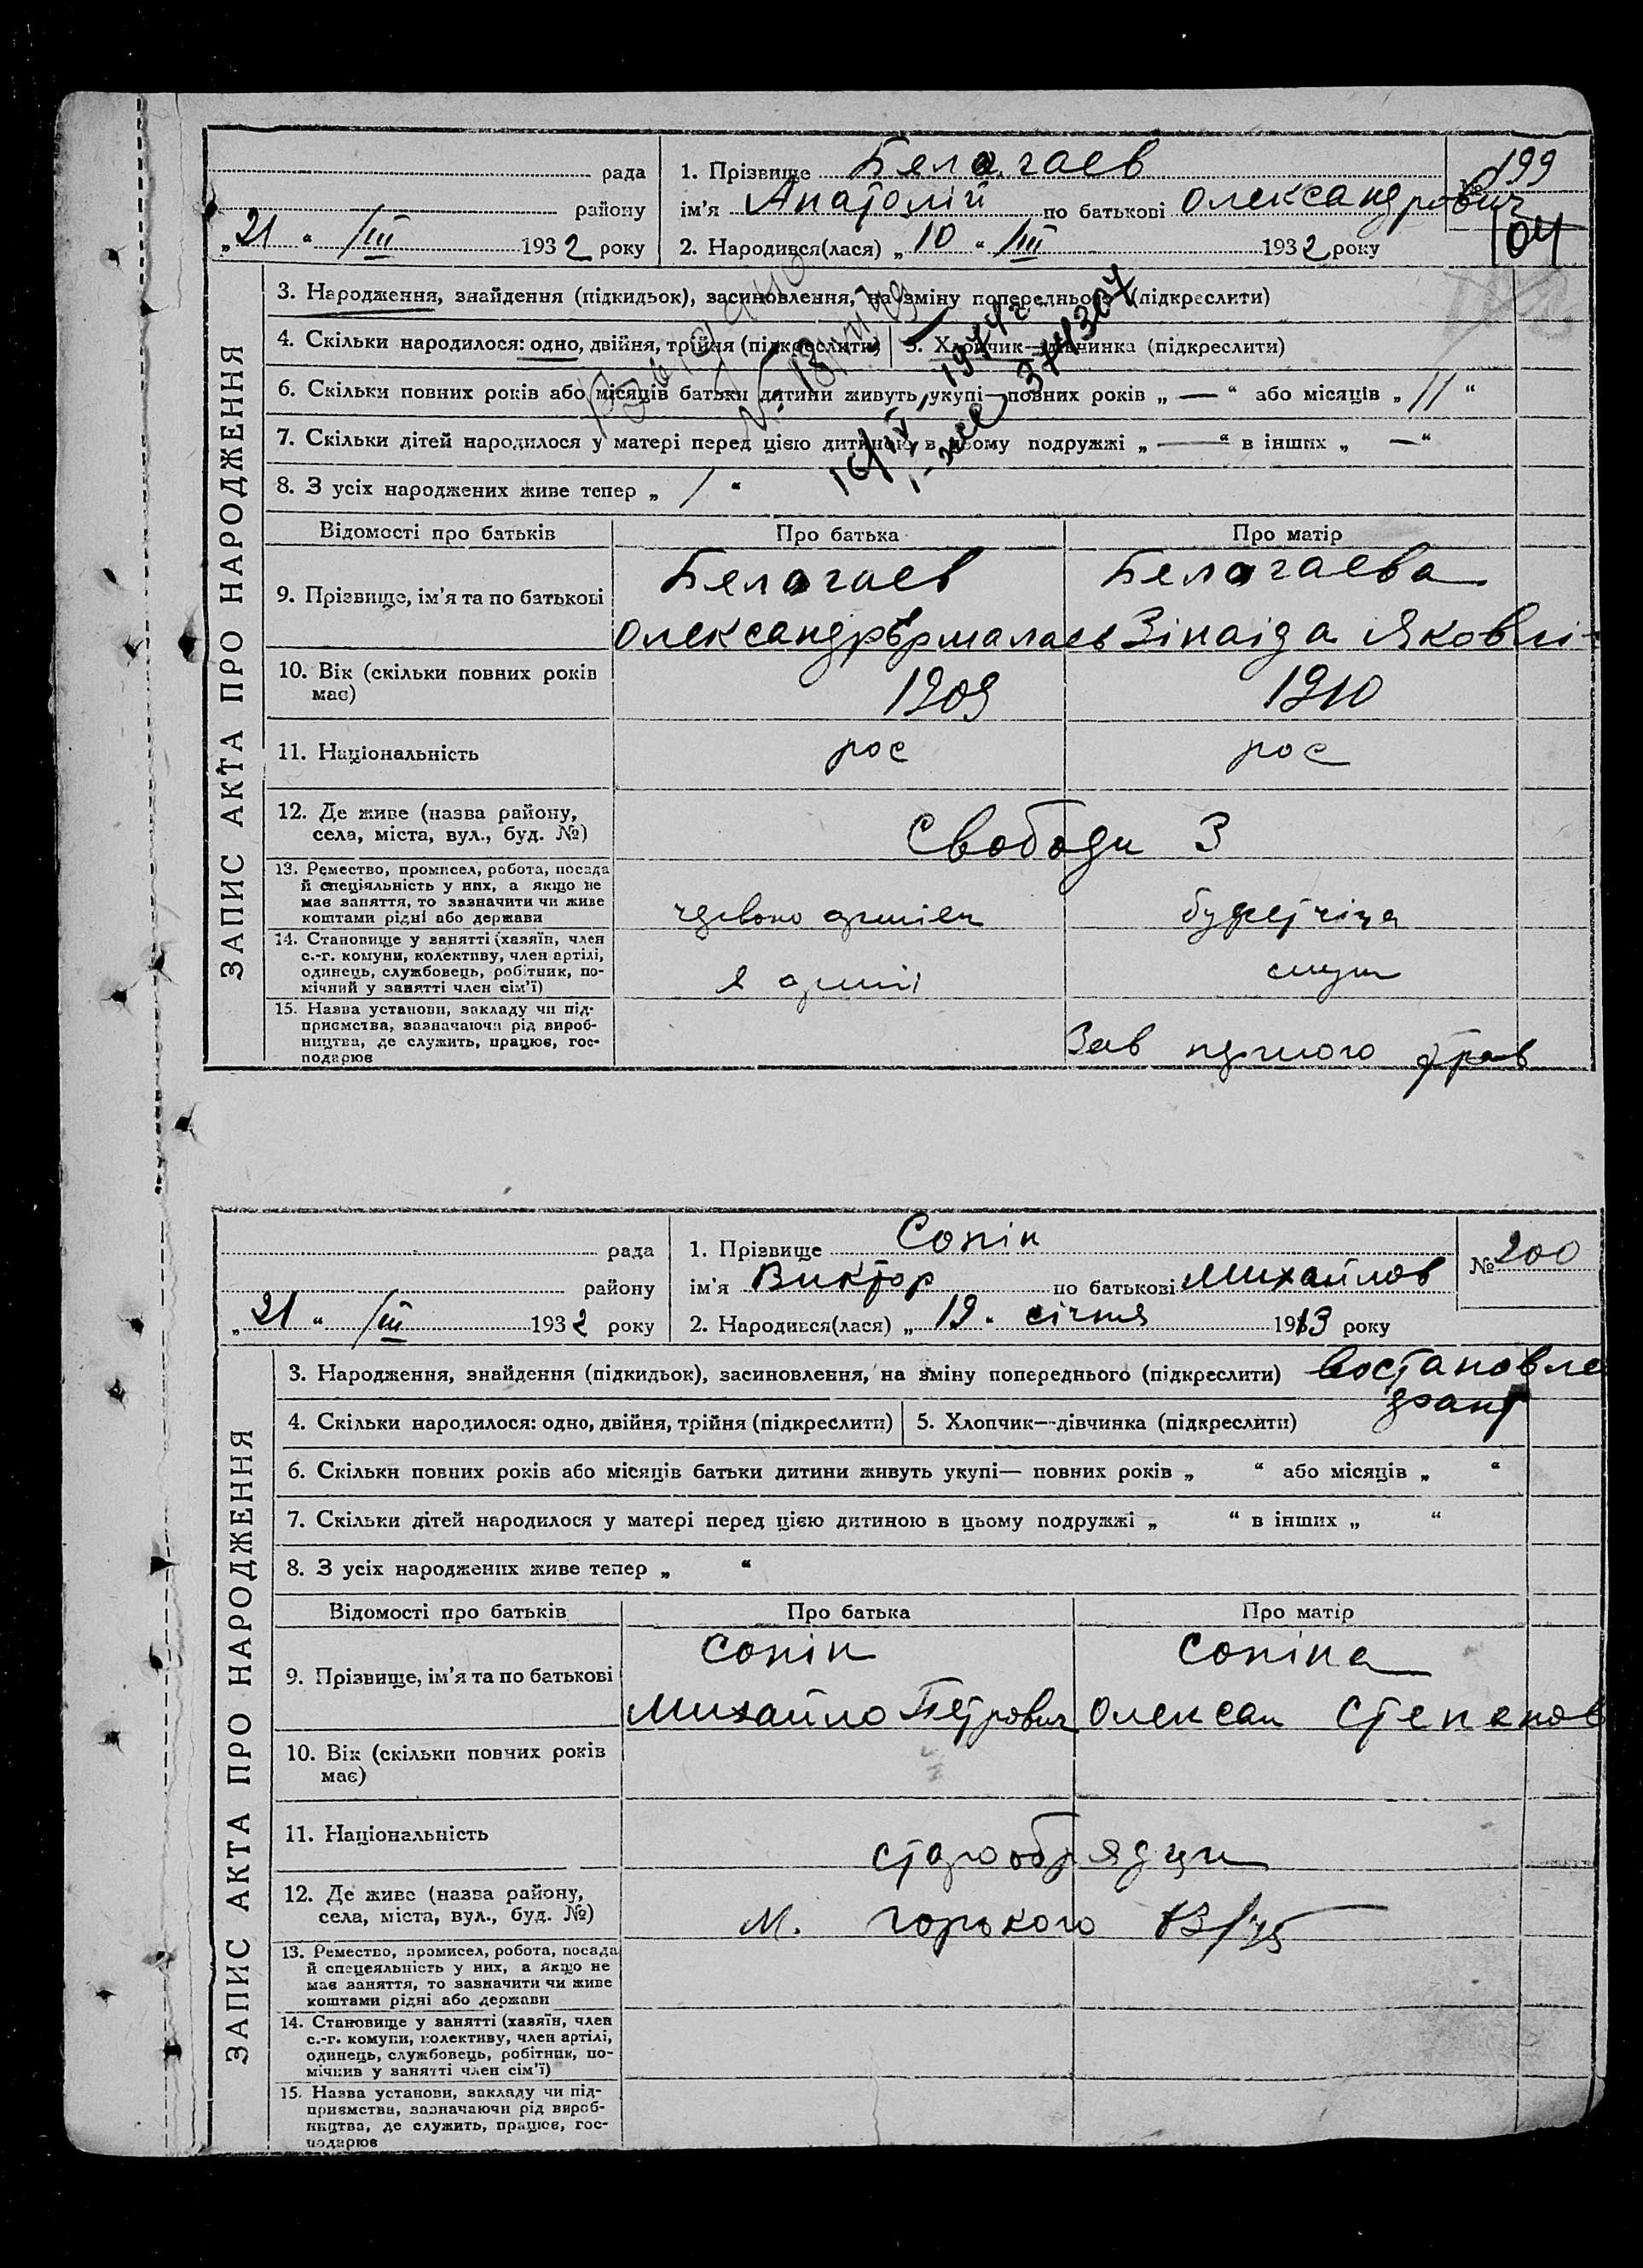 рада
1. Прізвище Белагаев
199
району
ім'я Анатолій по батькові Олександрович
„21“ /III 1932 року
2. Народився(лася) „10“ /III 1932 року
104
ЗАПИС АКТА ПРО НАРОДЖЕННЯ
3. Народження, знайдення (підкидьок), засиновлення, на зміну попереднього (підкреслити)
4. Скільки народилося: одно, двійня, трійня (підкреслити)
5. Хлопчик—дівчинка (підкреслити)
6. Скільки повних років або місяців батьки дитини живуть укупі—повних років „—“ або місяців „11“
7. Скільки дітей народилося у матері перед цією дитиною в цьому подружжі „—“ в інших „—“
8. З усіх народжених живе тепер „1“
Відомості про батьків
Про батька
Про матір
9. Прізвище, ім'я та по батькові
Белагаев
Белагаева
Олександр
Зінаіда Яковлі
10. Вік (скільки повних років має)
1909
1910
11. Національність
рос
рос
12. Де живе (назва району, села, міста, вул., буд. №)
Свободи 3
13. Ремество, промисел, робота, посада й спеціяльність у них, а якщо не має заняття, то зазначити чи живе коштами рідні або держави
червоно армієц
14. Становище у занятті (хазяїн, член с.-г. комуни, колективу, член артілі, одинець, службовець, робітник, помічний у занятті член сім'ї)
армії
15. Назва установи, закладу чи підприємства, зазначаючи рід виробництва, де служить, працює, господарює
Зав
рада
1. Прізвище Сопін
№ 200
району
ім'я Виктор по батькові Михайлов
„21“ /III 1932 року
2. Народився(лася) „19“ січня 1913 року
ЗАПИС АКТА ПРО НАРОДЖЕННЯ
3. Народження, знайдення (підкидьок), засиновлення, на зміну попереднього (підкреслити) востановле
4. Скільки народилося: одно, двійня, трійня (підкреслити)
5. Хлопчик—дівчинка (підкреслити)
6. Скільки повних років або місяців батьки дитини живуть укупі— повних років „ “ або місяців „ “
7. Скільки дітей народилося у матері перед цією дитиною в цьому подружжі „ “ в інших „ “
8. З усіх народжених живе тепер „ “
Відомості про батьків
Про батька
Про матір
9. Прізвище, ім'я та по батькові
Сопін
Сопіна
Михайло Петрович
Олексан Степанов
10. Вік (скільки повних років має)
11. Національність
старообрядци
12. Де живе (назва району, села, міста, вул., буд. №)
М. горького 13/75
13. Ремество, промисел, робота, посада й спецеяльність у них, а якщо не має заняття, то зазначити чи живе коштами рідні або держави
14. Становище у занятті (хазяїн, член с.-г. комуни, колективу, член артілі, одинець, службовець, робітник, помічнив у занятті член сім'ї)
15. Назва установи, закладу чи підприємства, зазначаючи рід виробництва, де служить, працює, господарює